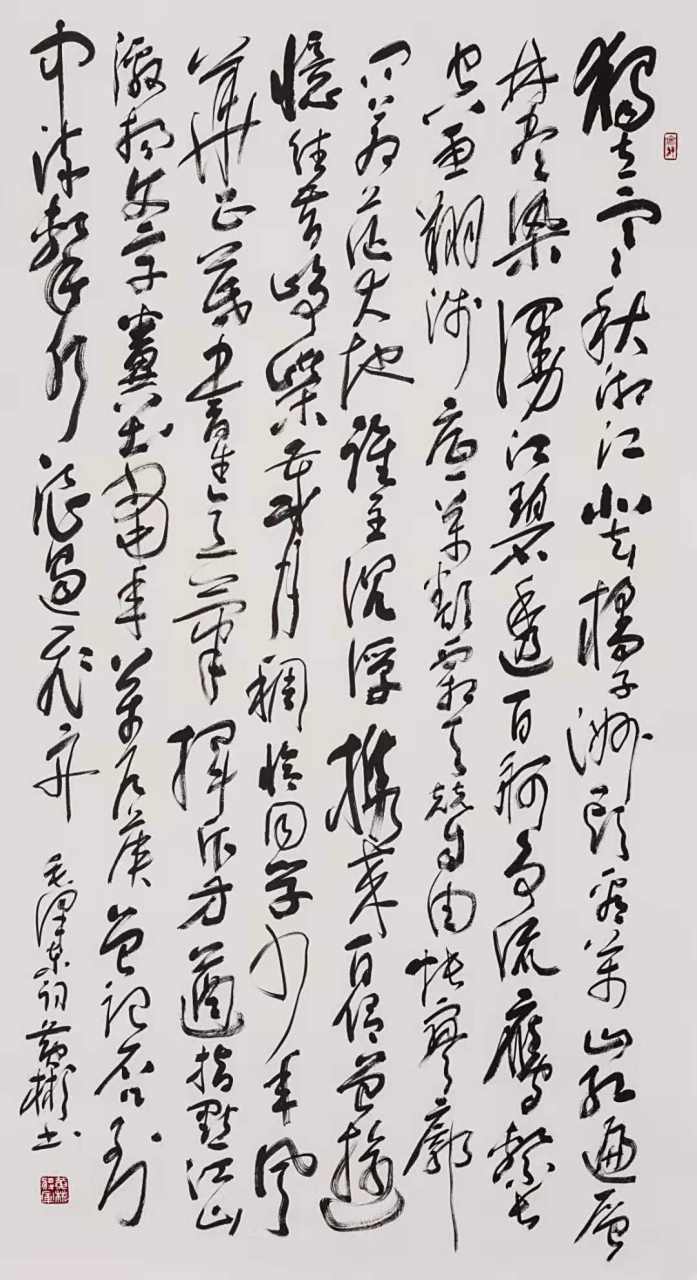 獨立寒秋湘江北去橘子洲头看萬山紅遍层
林盡染漫江碧透百舸争流鷹擊长
空魚翔浅底萬類霜天競自由怅寥廓
问苍茫大地誰主沉浮携来百侣曾遊
憶往昔峥嵘歲月稠恰同学少年风
華正茂書生意氣揮斥方遒指點江山
激揚文字糞土當年萬户侯曾记否到
中流擊水浪遏飛舟
毛澤東词黄彬书